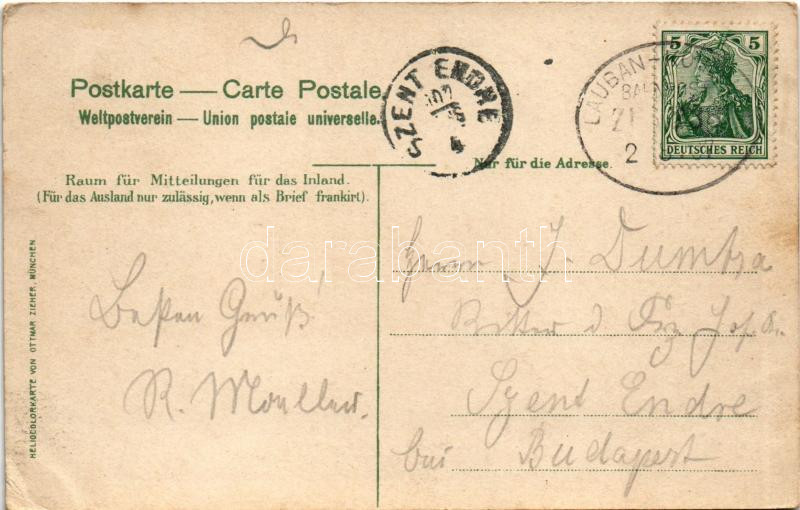 Postkarte — Carte Postale.
Weltpostverein — Union postale universelle.
SZENT ENDRE
LAUBAN
5 5
DEUTSCHES REICH
Nur für die Adresse.
Raum für Mitteilungen für das Inland.
(Für das Ausland nur zulässig, wenn als Brief frankirt).
HELIOCOLORKARTE VON OTTMAR ZIEHER, MÜNCHEN
darabanth
Besten Gruß!
R. Moeller.
Herrn J. Dumtsa
Ritter d Frz Jos.
Szent Endre
bei Budapest